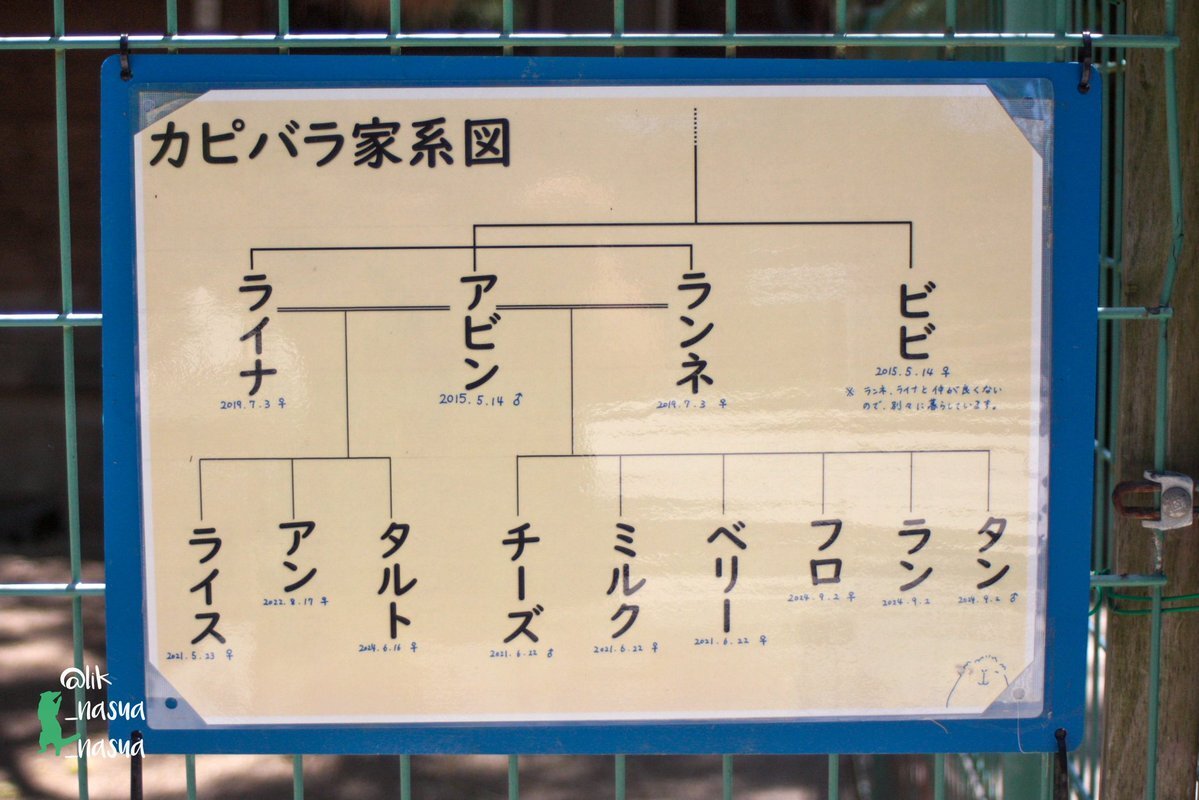 カピバラ家系図
ライナ
2019.7.3 ♀
アビン
2015.5.14 ♂
ランネ
2019.7.3 ♀
ビビ
2015.5.14 ♀
※ ランネ、ライナと仲が良くない
ので、別々に暮らしています。
ライス
2021.5.23 ♀
アン
2022.8.17 ♀
タルト
2024.6.16 ♀
チーズ
2021.6.22 ♂
ミルク
2021.6.22 ♀
ベリー
2021.6.22 ♀
フロ
2024.9.2 ♀
ラン
2024.9.2
タン
2024.9.2 ♂
@lik
_nasua
_nasua